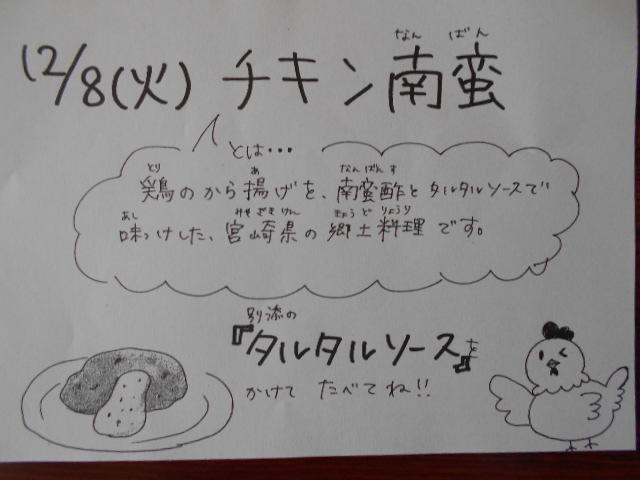 12/8(火) チキン南蛮
なん ばん
とは…
鶏のから揚げを、南蛮酢とタルタルソースで
とり あ なんばんす
味つけした、宮崎県の郷土料理です。
あじ みやざきけん きょうど りょうり
別添の
『タルタルソース』を
かけて たべてね!!